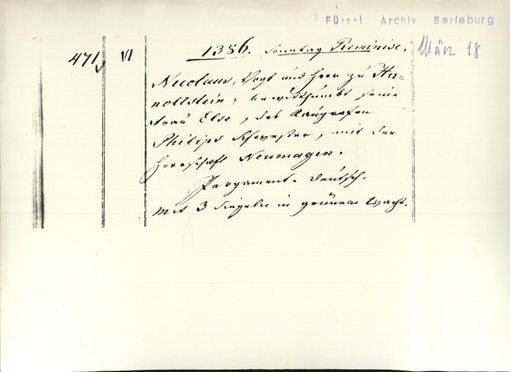 Fürstl. Archiv Berleburg
471, VI 1386. Sonntag Reminisc. März 18
Nicolaus, Vogt und Herr zu Hu-
noltstein, bewitthumbt seine
Frau Else, des Raugrafen
Philips Schwester, mit der
Herrschaft Neumagen.
Pergament. Deutsch.
Mit 3 Siegeln in grünem Wachs.